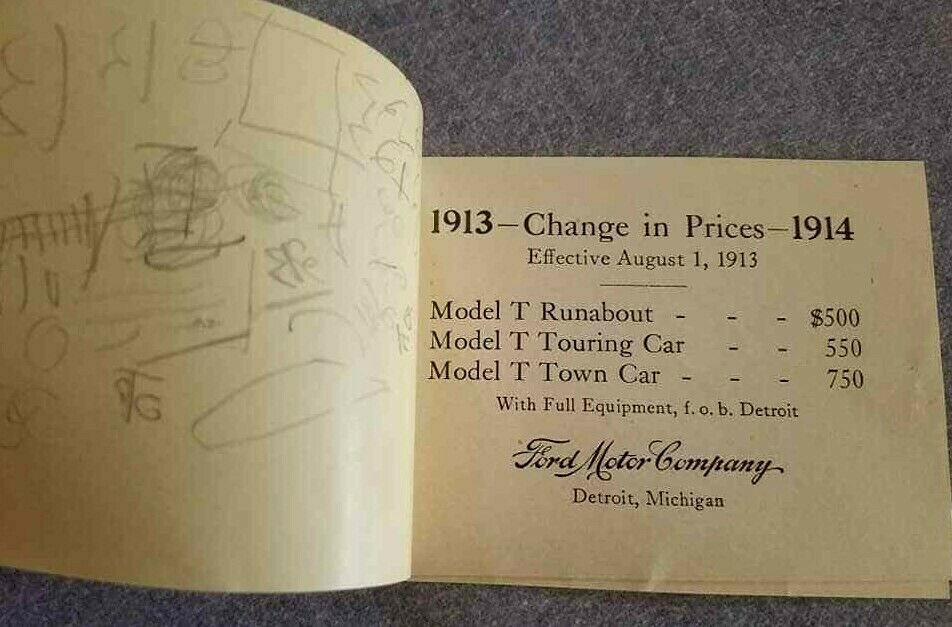 1913—Change in Prices—1914
Effective August 1, 1913
Model T Runabout - - - $500
Model T Touring Car - - 550
Model T Town Car - - - 750
With Full Equipment, f. o. b. Detroit
Ford Motor Company
Detroit, Michigan